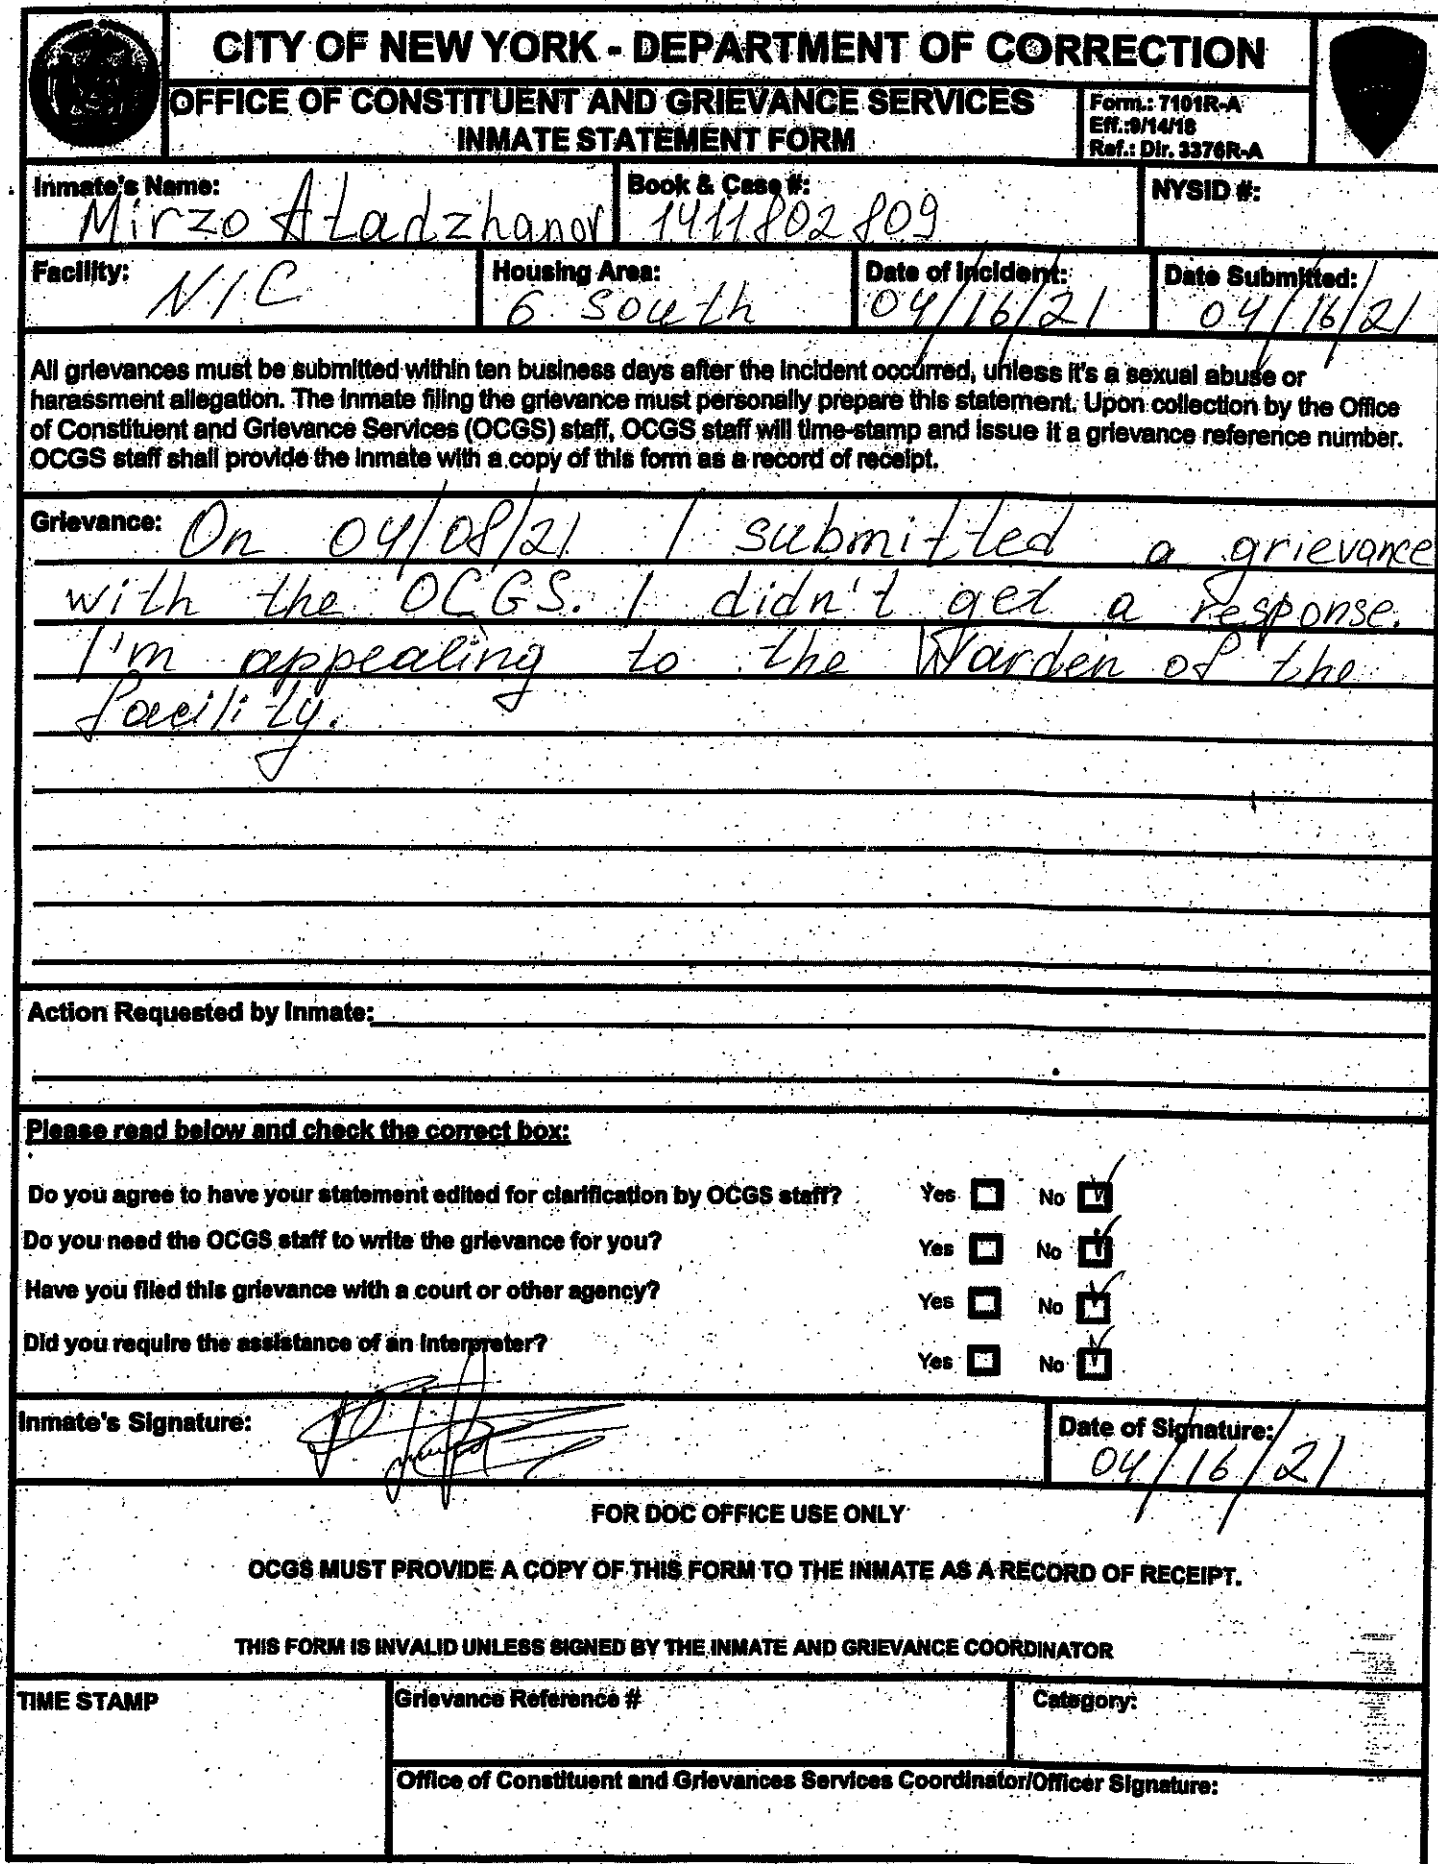 CITY OF NEW YORK - DEPARTMENT OF CORRECTION
OFFICE OF CONSTITUENT AND GRIEVANCE SERVICES
INMATE STATEMENT FORM
Form.: 7101R-A
Eff.:9/14/18
Ref.: Dir. 3376R-A
Inmate's Name: Mirzo Atadzhanov
Book & Case #: 1411802809
NYSID #:
Facility: NIC
Housing Area: 6 South
Date of Incident: 04/16/21
Date Submitted: 04/16/21
All grievances must be submitted within ten business days after the incident occurred, unless it's a sexual abuse or
harassment allegation. The inmate filing the grievance must personally prepare this statement. Upon collection by the Office
of Constituent and Grievance Services (OCGS) staff, OCGS staff will time-stamp and issue it a grievance reference number.
OCGS staff shall provide the inmate with a copy of this form as a record of receipt.
Grievance: On 04/08/21 I submitted a grievance
with the OCGS. I didn't get a response.
I'm appealing to the Warden of the
facility.
Action Requested by Inmate:
Please read below and check the correct box:
Do you agree to have your statement edited for clarification by OCGS staff? Yes No
Do you need the OCGS staff to write the grievance for you? Yes No
Have you filed this grievance with a court or other agency? Yes No
Did you require the assistance of an interpreter? Yes No
Inmate's Signature:
Date of Signature: 04/16/21
FOR DOC OFFICE USE ONLY
OCGS MUST PROVIDE A COPY OF THIS FORM TO THE INMATE AS A RECORD OF RECEIPT.
THIS FORM IS INVALID UNLESS SIGNED BY THE INMATE AND GRIEVANCE COORDINATOR
TIME STAMP
Grievance Reference #
Category:
Office of Constituent and Grievances Services Coordinator/Officer Signature: